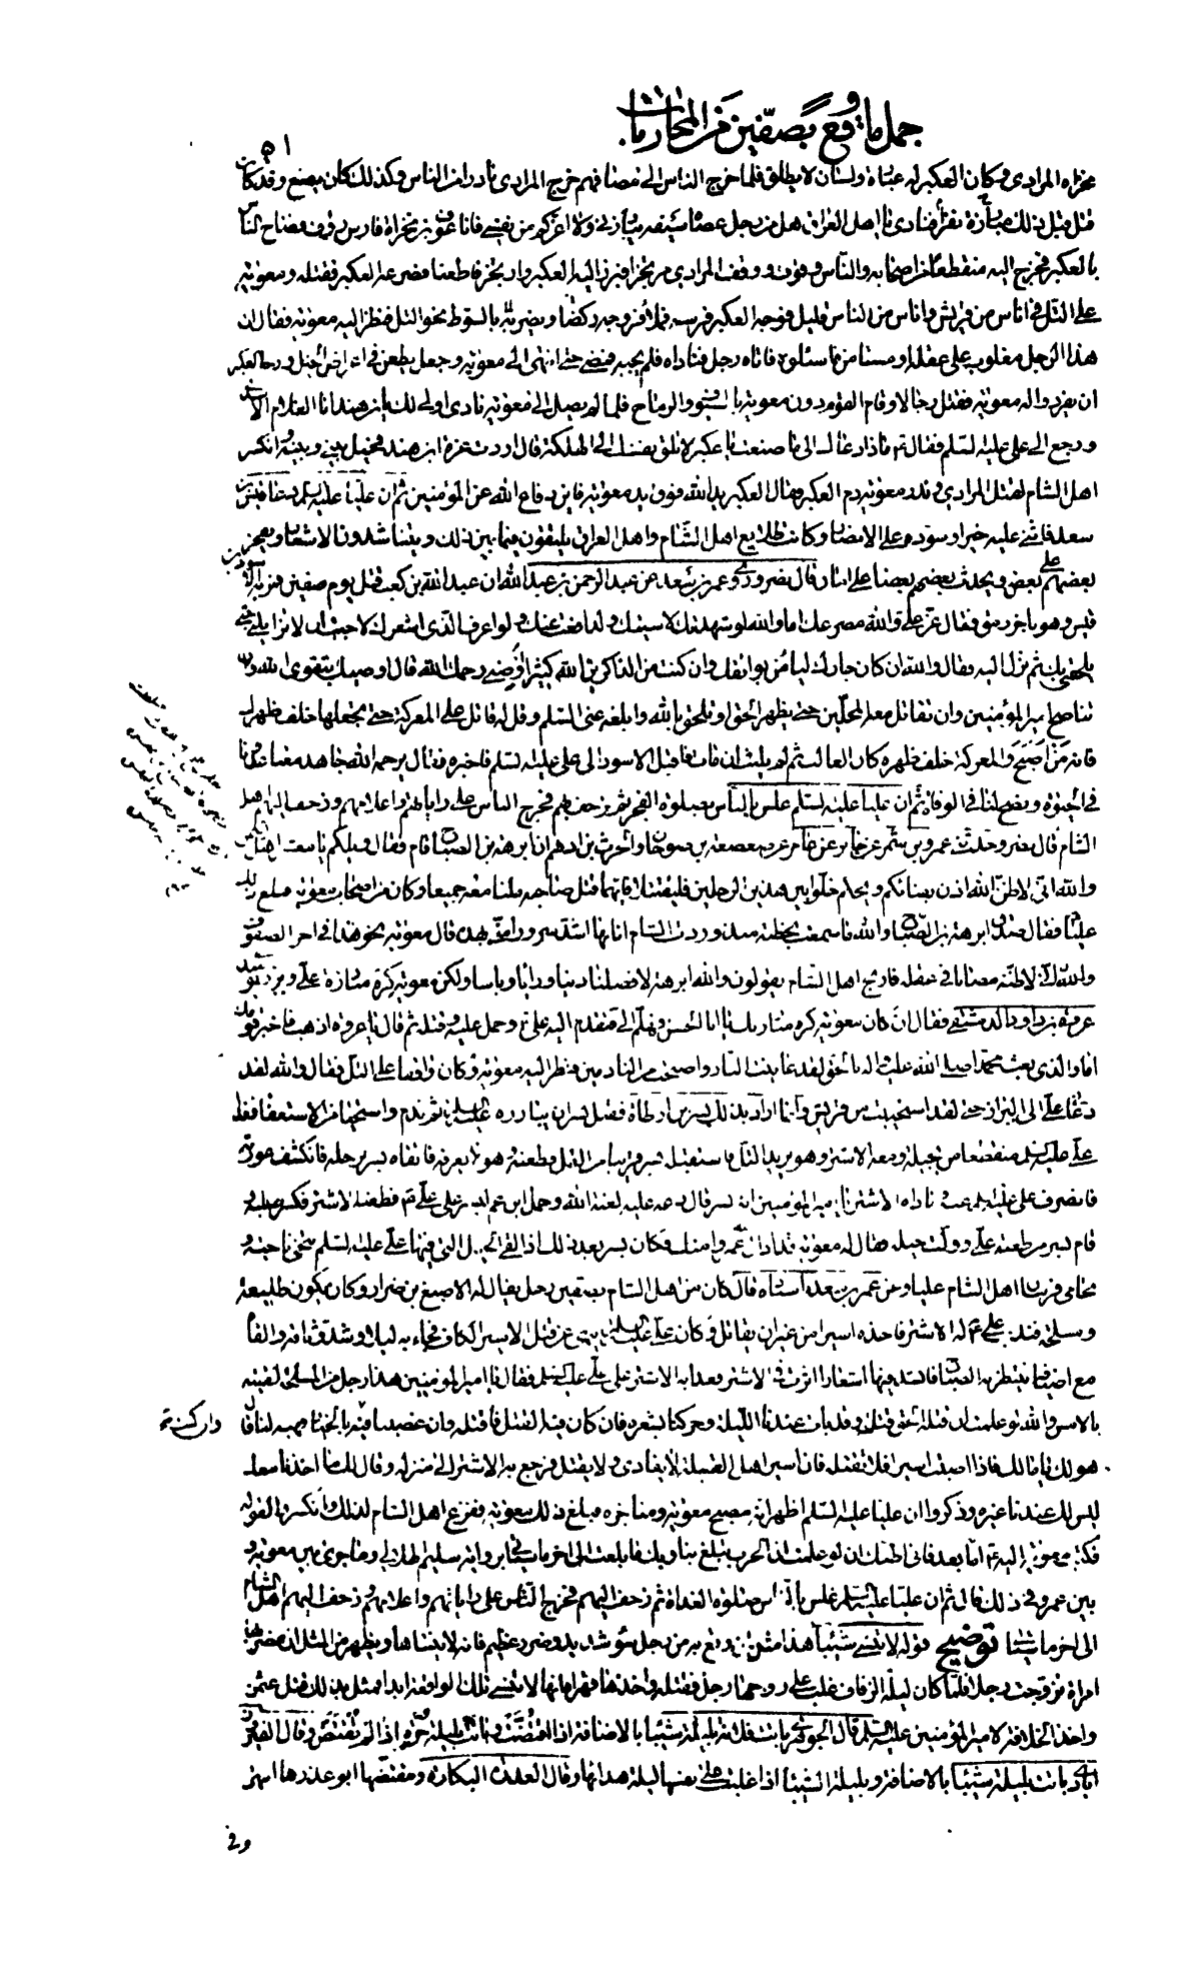 جمل ما وقع بصفين من المحاربات
٥١
مجزاة المرادي وكان العكبر له عبادة ولسان لا يطلق فلما خرج الناس الى مصافهم خرج المرادي نادرا من الناس وكذلك كان يصنع وقد كان
قتل قبل ذلك مبارزة نفرا فنادى يا اهل العراق هل من رجل عصاه سيفه يبارزني ولا اغركم من نفسي فانا عوف بن مجزاة فارس زوف فصاح الناس
بالعكبر فخرج اليه منقطعا من اصحابه والناس وقوف ووقف المرادي فبرز اليه العكبر وارتجز فاطعنا فصرعه العكبر فقتله ومعوية
على التل في اناس من قريش واناس من الناس قليل فوجه العكبر فرسه فملأ فروجه ركضا ويضربه بالسوط نحو التل فنظر اليه معوية فقال ان
هذا الرجل مغلوب على عقله او مستامن فاسئلوه فاتاه رجل فناداه فلم يجبه فمضى حتى انتهى الى معوية وجعل يطعن في اعراض الخيل ورجا العكبر
ان يفردوا له معوية فقتل رجالا وقام القوم دون معوية بالسيوف والرماح فلما لم يصل الى معوية نادى اولى لك يا بن هند انا الغلام الاسدي
ورجع الى علي عليه السلم فقال ماذا دعاك الى ما صنعت يا عكبر لا تلق نفسك الى الهلكة قال اردت غرة ابن هند فحيل بيني وبينه وانكسر
اهل الشام لقتل المرادي وهدر معوية دم العكبر فقال العكبر يد الله فوق يد معوية فاين دفاع الله عن المؤمنين ثم ان عليا عليه السلم دعا قيس بن
سعد فاثنى عليه خيرا وسوده على الانصار وكانت طلايع اهل الشام واهل العراق يلتقون فيما بين ذلك ويتناشدون الاشعار ويفخر
بعضهم على بعض ويحدث بعضهم بعضا على امان قال نصر وروى عمر بن سعد عن عبد الرحمن بن عبد الله ان عبد الله بن كعب قتل يوم صفين فمر به الاسود بن
قيس وهو باخر رمق فقال عز علي والله مصرعك اما والله لو شهدتك لاسيتك ولدافعت عنك ولو اعرف الذي اشعرك لاحببت ان لا يزايلني حتى
يلحقني بك ثم نزل اليه فقال والله ان كان جارك ليامن بوائقك وان كنت من الذاكرين الله كثيرا اوصني رحمك الله قال اوصيك بتقوى الله وان
تناصح امير المؤمنين وان تقاتل معه المحلين حتى يظهر الحق او تلحق بالله وابلغه عني السلم وقل له قاتل على المعركة حتى تجعلها خلف ظهرك
فانه من اصبح والمعركة خلف ظهره كان الغالب ثم لم يلبث ان مات فاقبل الاسود الى علي عليه السلم فاخبره فقال يرحمه الله جاهد معنا عدونا
في الحيوة ونصح لنا في الوفاة ثم ان عليا عليه السلم غلس بالناس بصلوة الفجر ثم زحف بهم فخرج الناس على راياتهم واعلامهم وزحف اليهم اهل
الشام قال نصر وحدثني عمرو بن شمر عن جابر عن عامر عن صعصعة بن صوحان والحرث بن ادهم ان ابرهة بن الصباح قام فقال ويلكم يا معشر اهل اليمن
والله اني لاظن الله اذن بفنائكم ويحكم خلوا بين هذين الرجلين فليقتتلا فايهما قتل صاحبه ملنا معه جميعا وكان من اصحاب معوية فبلغ ذلك
عليا فقال صدق ابرهة بن الصباح والله ما سمعت بخطبة منذ وردت الشام انا بها اشد سرورا مني بهذه قال معوية نحو هذا في اخر الصفوف
والله اني لاظنه مصابا في عقله فاقبل اهل الشام يقولون والله ابرهة لافضلنا دينا ورايا وباسا ولكن معوية كره مبارزة علي وبرز يومئذ
عروة بن داود الدمشقي فقال ان كان معوية كره مبارزتك يا ابا الحسن فهلم الي فتقدم اليه علي وحمل عليه وقتله ثم قال يا عروة اذهب فاخبر قومك
اما والذي بعث محمدا صلى الله عليه واله بالحق لقد عاينت النار واصبحت من النادمين فنظر اليه معوية وكان واقفا على التل فقال والله لقد
دعانا علي الى البراز حتى لقد استحييت من قريش وانما اراد بذلك بسر بن ارطاة فقال بسر ان يبارزه ثم ندم واستحيا من الاستعفا فغدا
علي عليه السلم منقطعا من خيله ومعه الاشتر وهو يريد التل فاستقبله بسر قريبا من التل فطعنه وهو لا يعرفه فاتقاه بسر برجله فانكشف عورته
فانصرف علي عليه السلم عنه وناداه الاشتر يا امير المؤمنين انه بسر قال دعه عليه لعنة الله وحمل ابن عم لبسر على علي فطعنه الاشتر فكسر صلبه
قام بسر من طعنة علي وولت خيله فقال له معوية فكان بسر بعد ذلك اذا لقي الخيل التي فيها علي عليه السلم تنحى ناحية و
تحامى فرسان اهل الشام عليا وعن عمر بن سعد باسناده قال كان من اهل الشام بصفين رجل يقال له الاصبغ بن ضرار وكان يكون طليعة
ومسلحة فندب علي له الاشتر فاخذه اسيرا من غير ان يقاتل وكان علي عليه السلم ينهى عن قتل الاسير الكاف فجاء به ليلا وشد وثاقه والقاه
مع اضيافه ينتظر به الصباح فانشد فيها اشعارا اثرت في الاشتر فغدا به الاشتر على علي عليه السلم فقال يا امير المؤمنين هذا رجل من المسلحة لقيته
بالامس والله لو علمت ان قتله الحق قتلته وقد بات عندنا الليلة وحركنا بشعره فان كان فيه القتل فاقتله وان غضبنا فيه وان كنت بالخيار فهبه لنا قال
هو لك يا مالك فاذا اصبت اسيرا فلا تقتله فان اسير اهل القبلة لا يفادى ولا يقتل فرجع به الاشتر الى منزله وقال لك ما اخذنا معك
ليس لك عندنا غيره وذكروا ان عليا عليه السلم اظهر انه مصبح معوية ومناجزه فبلغ ذلك معوية ففزع اهل الشام لذلك وانكسروا لقوله
فكتب معوية اليه اما بعد فاني اظنك ان لو علمت ان الحرب تبلغ بنا وبك ما بلغت الى اخر ما سياتي برواية سليم الهلالي وما جرى بين معوية و
بين عمرو في ذلك قال ثم ان عليا عليه السلم غلس بالناس صلوة الغداة ثم زحف اليهم فخرج الناس على راياتهم واعلامهم وزحف اليهم اهل الشام
الى اخر ما سياتي توضيح قوله لا تنسى شيبا هذا مثل وقع به من رجل سوء شديد وضرر عظيم فانه لا ينساها ويظهر من المثل ان
امراة تزوجت رجلا فلما كان ليلة الزفاف غلب على زوجها رجل فقتله واخذها فهرا فانها لا تنسى ذلك الواقعة ابدا فمثل بذلك قتل عثمن
واخذ الخلافة لامير المؤمنين عليه السلم قال الجوهري باتت فلانة بليلة شيباء بالاضافة اذا افتضت وباتت بليلة حرة اذا لم تفتض وقال الفيروز
آبادي باتت بليلة شيباء بالاضافة وبليلة الشيباء اذا غلبت على نفسها ليلة هدائها وقال العذرة البكارة ومفتضها ابو عذرها انتهى
وفي